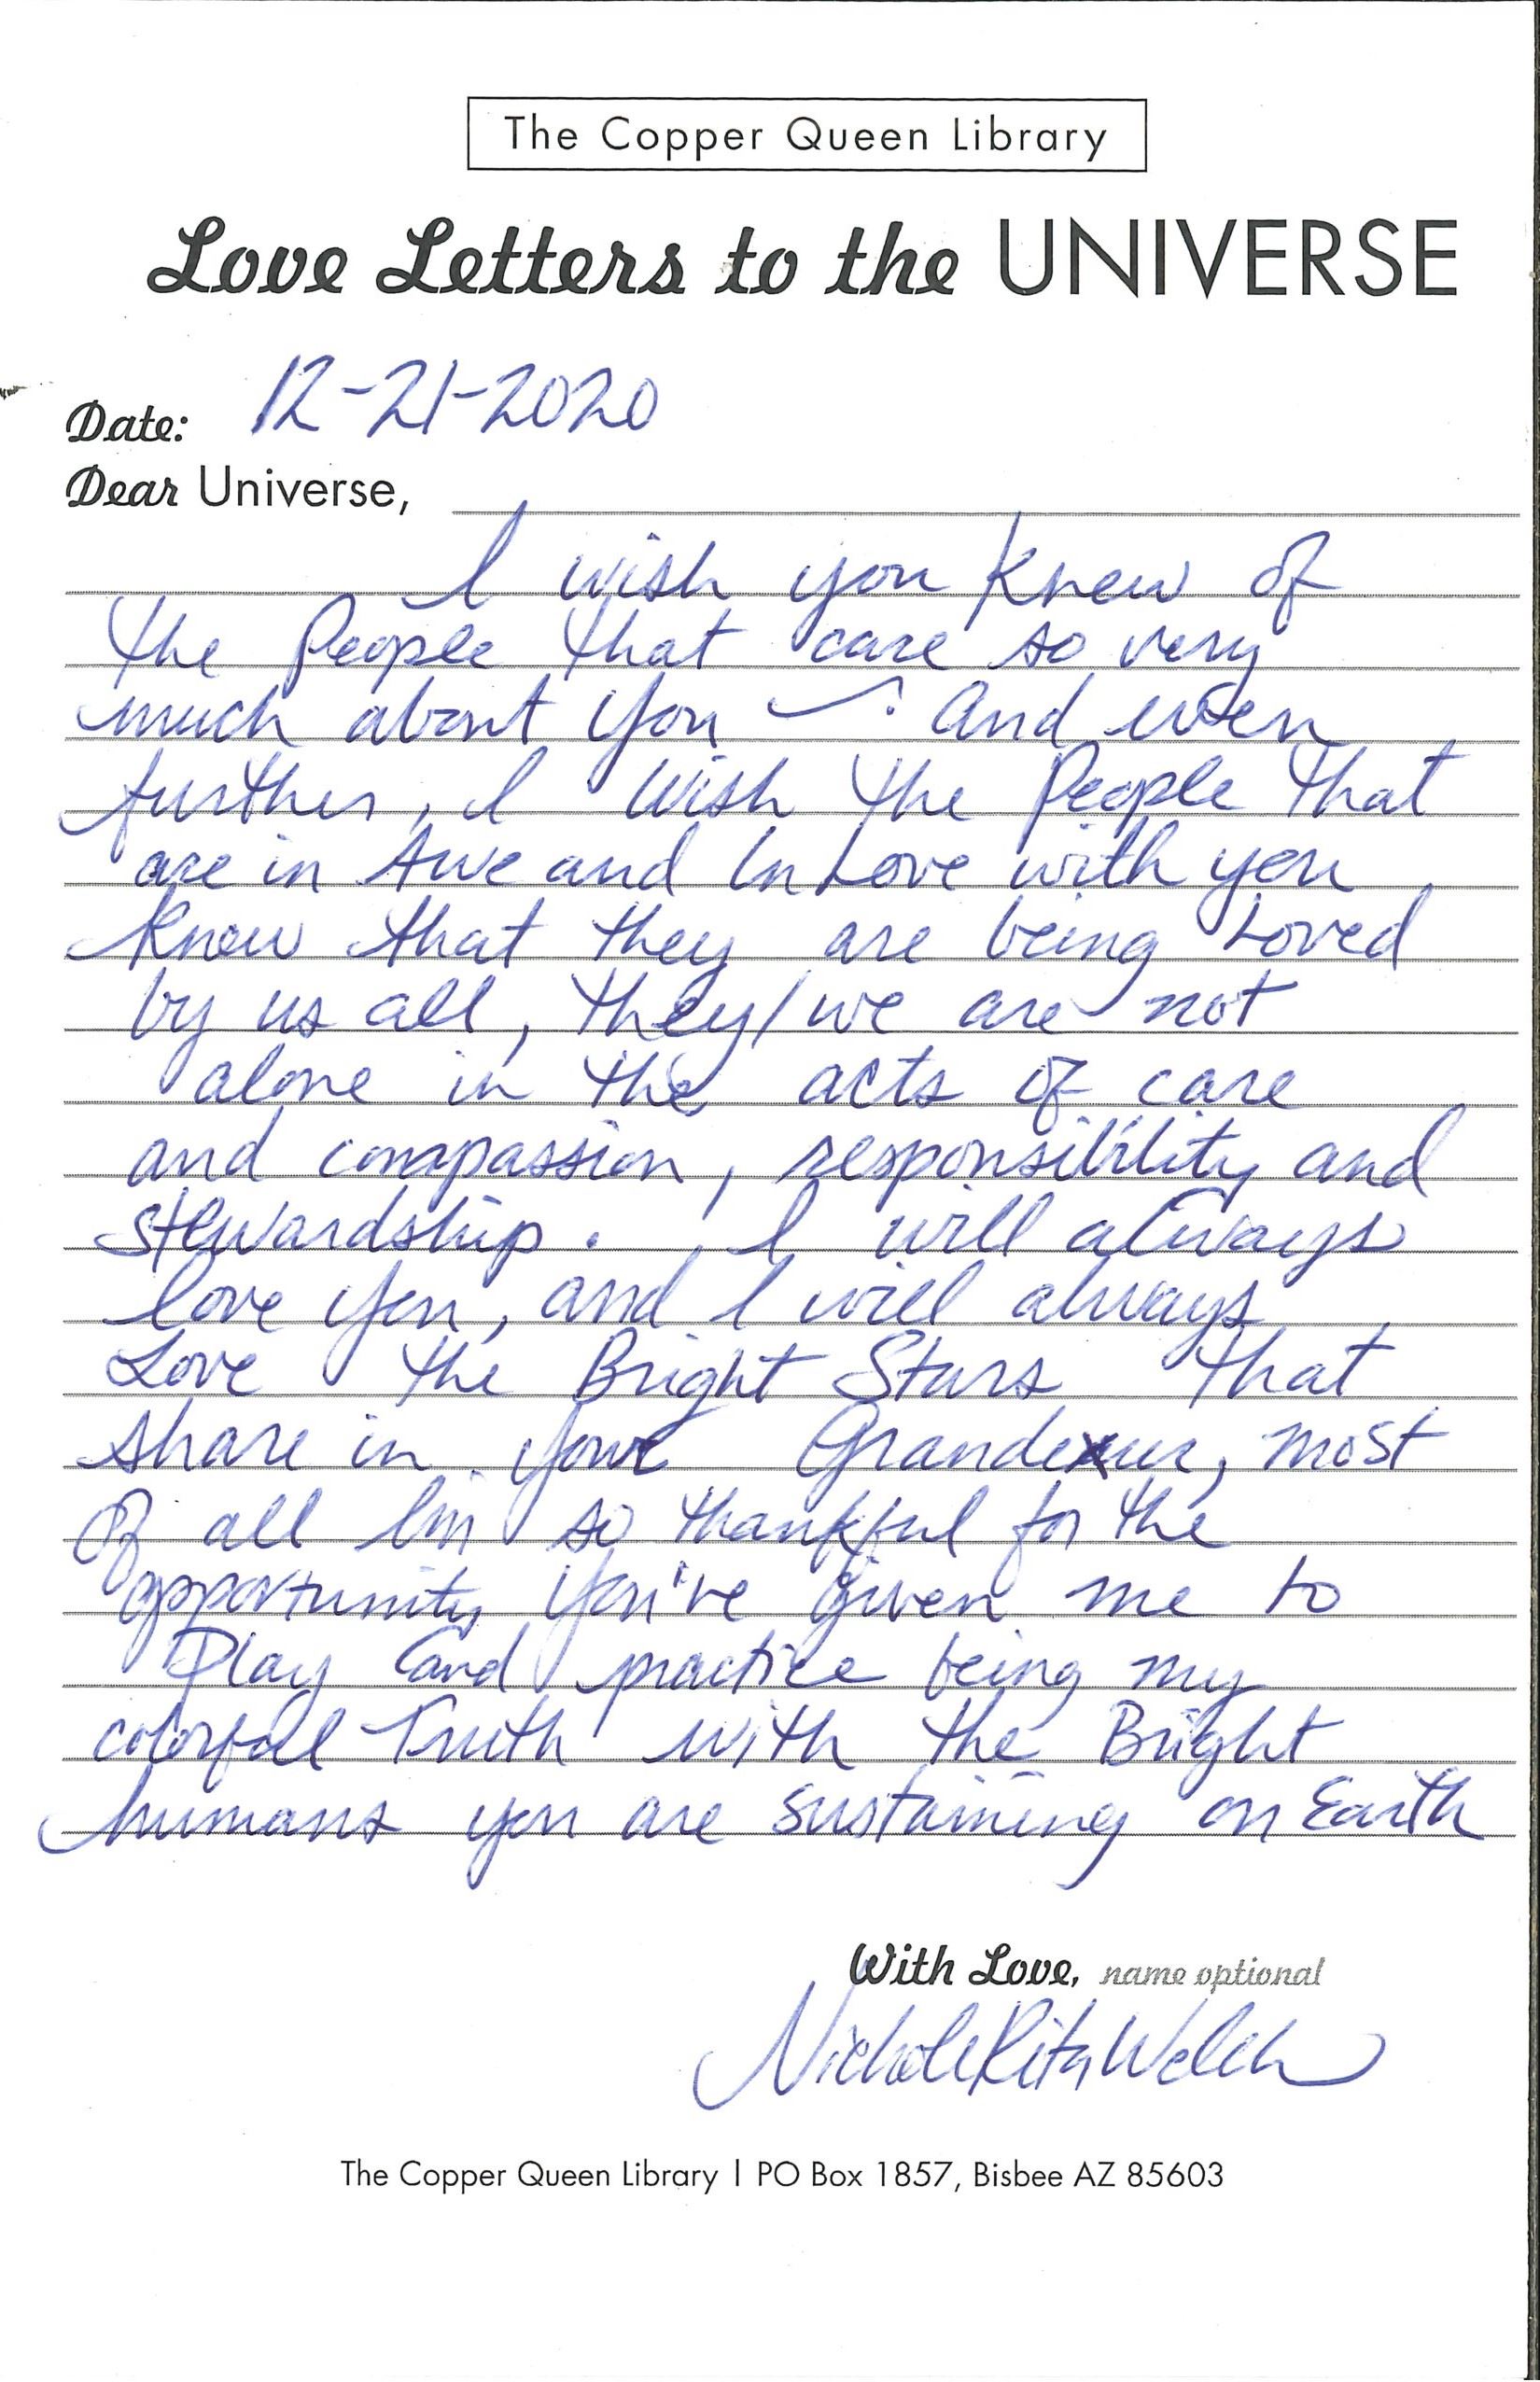 The Copper Queen Library
Love Letters to the UNIVERSE
Date: 12-21-2020
Dear Universe,
I wish you knew of
the People that care so very
much about you ~. And even
further, I wish the People that
are in Awe and In Love with you
know that they are being Loved
by us all, they/we are not
alone in the acts of care
and compassion, responsibility and
stewardship. I will always
love you, and I will always
Love the Bright Stars that
share in your Grandeur, most
of all I'm so thankful for the
opportunity you've given me to
Play and practice being my
colorful Truth with the Bright
humans you are sustaining on Earth
With Love, name optional
Nichole Rita Welch
The Copper Queen Library | PO Box 1857, Bisbee AZ 85603